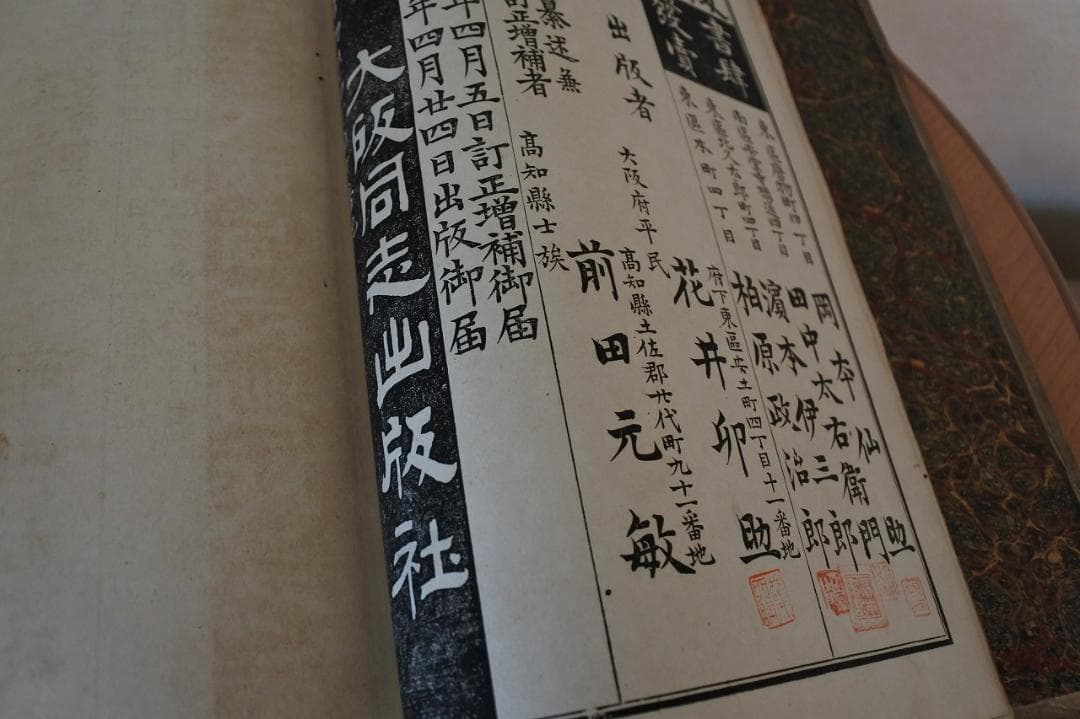 書肆
發賣
東區唐物町四丁目 岡本仙助
田中太右衛門
東區北久太郎町四丁目 濱本伊三郎
東區本町四丁目 柏原政治郎
府下東區安土町四丁目十一番地
出版者 大阪府平民 花井卯助
高知縣土佐郡廿代町九十一番地
纂述兼
訂正增補者 高知縣士族 前田元敏
年四月五日訂正增補御届
年四月廿四日出版御届
大阪同志出版社